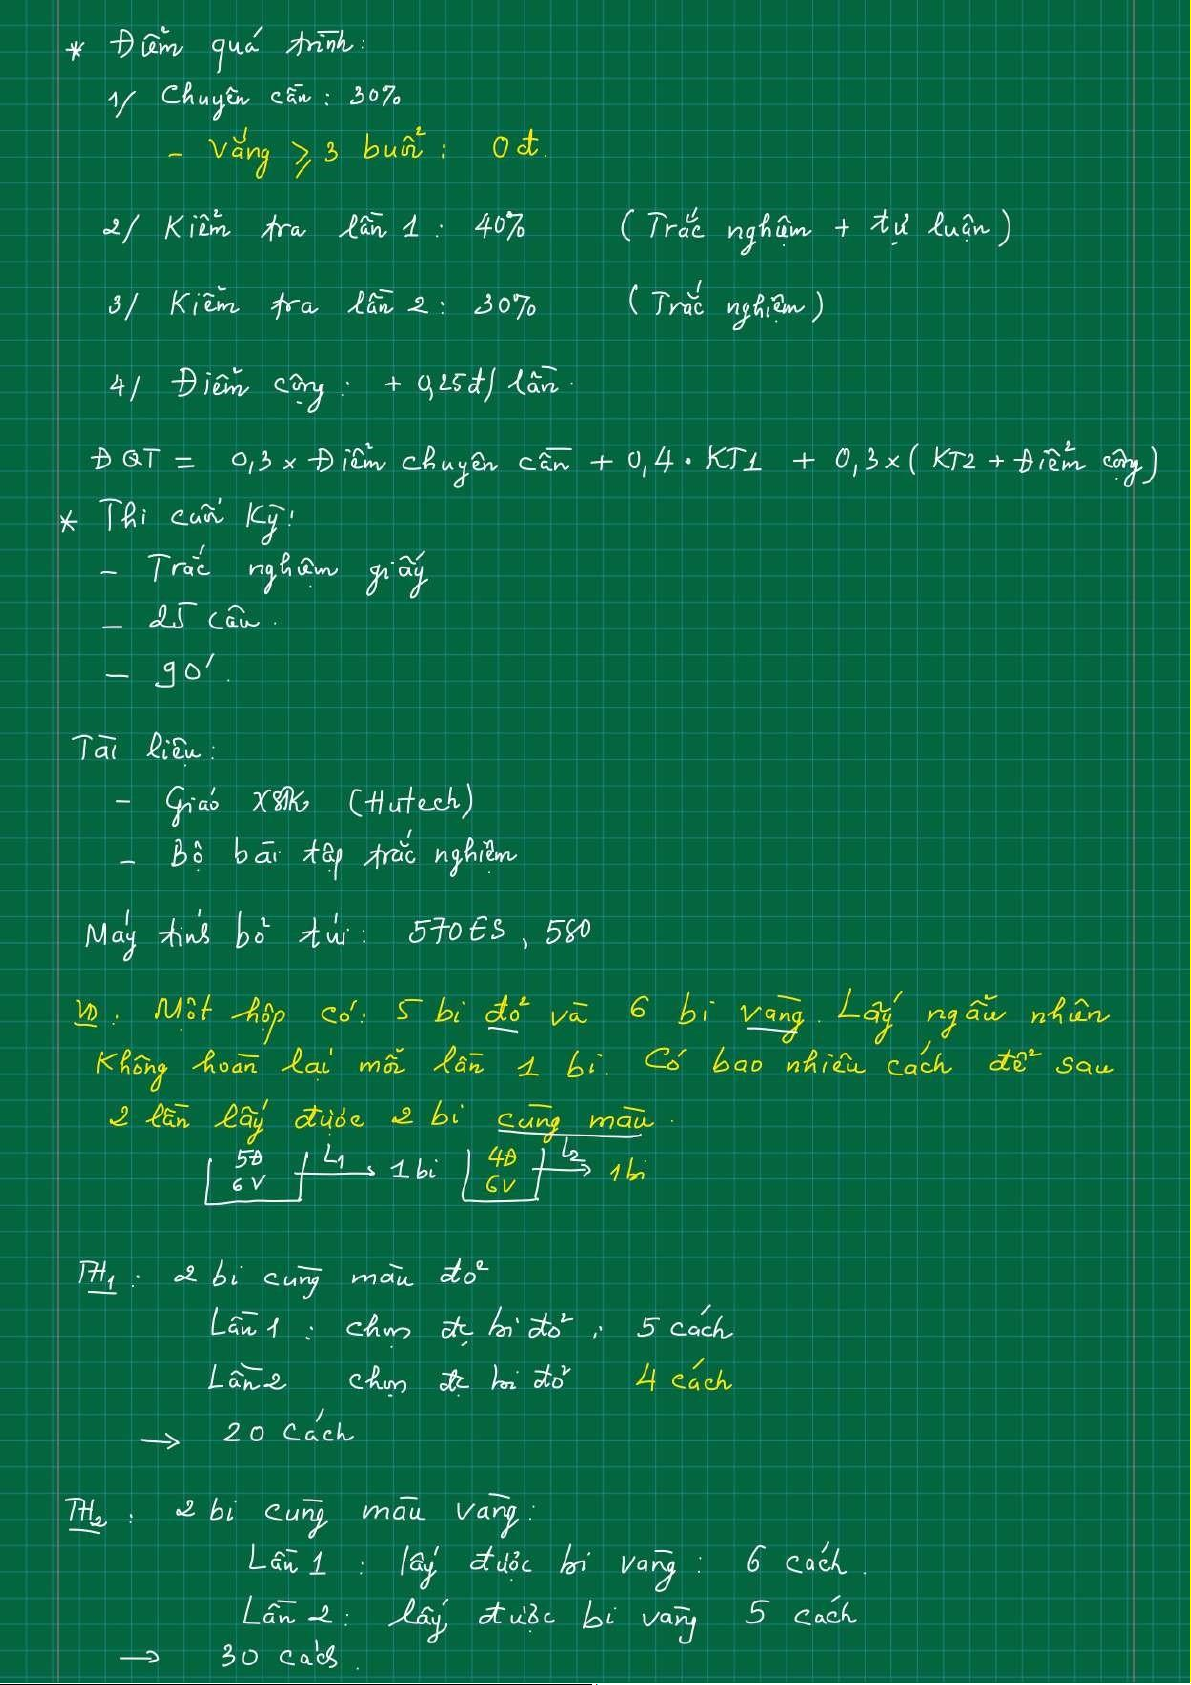 * Điểm quá trình:
1/ Chuyên cần: 30%
- Vắng ⩾ 3 buổi: 0đ.
2/ Kiểm tra lần 1: 40% (Trắc nghiệm + tự luận)
3/ Kiểm tra lần 2: 30% (Trắc nghiệm)
4/ Điểm cộng: + 0,25đ/ lần.
ĐQT = 0,3 x Điểm chuyên cần + 0,4 . KT1 + 0,3 x ( KT2 + Điểm cộng)
* Thi cuối Kỳ:
- Trắc nghiệm giấy
- 25 câu.
- 90'.
Tài liệu:
- Giáo XSTK (Hutech)
- Bộ bài tập trắc nghiệm
Máy tính bỏ túi: 570ES, 580
VD: Một hộp có: 5 bi đỏ và 6 bi vàng. Lấy ngẫu nhiên
Không hoàn lại mỗi lần 1 bi. Có bao nhiêu cách để sau
2 lần lấy được 2 bi cùng màu.
5Đ 6V L1 → 1 bi 4Đ 6V L2 → 1bi
TH1: 2 bi cùng màu đỏ
Lần 1: chọn đc bi đỏ: 5 cách
Lần 2 chọn đc bi đỏ 4 cách
→ 20 cách
TH2: 2 bi cùng màu vàng:
Lần 1: lấy được bi vàng: 6 cách.
Lần 2: lấy được bi vàng 5 cách
→ 30 cách.